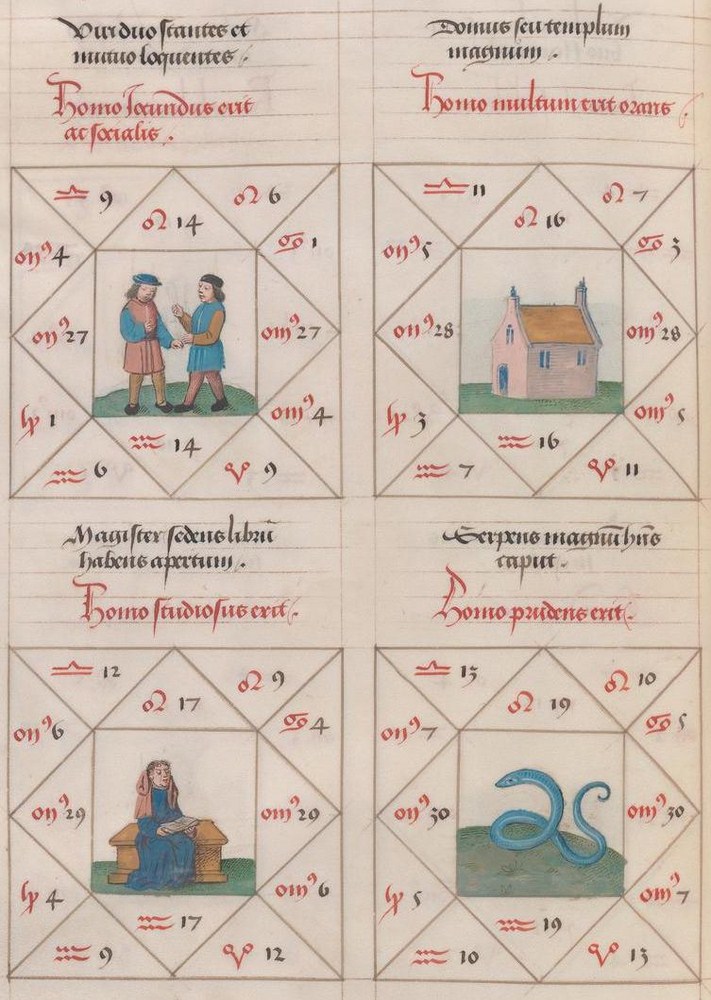 Viri duo stantes et
mutuo loquentes .
Homo Jocundus erit
ac socialis .
♎ 9
♌ 14
♌ 6
4
♋ 1
27
27
1
4
♒ 6
♒ 14
♈ 9
Domus seu templum
magnum .
Homo multum erit orans
♎ 11
♌ 16
♌ 7
5
♋ 3
28
28
3
5
♒ 7
♒ 16
♈ 11
Magister sedens librū
habens apertum .
Homo studiosus erit .
♎ 12
♌ 17
♌ 9
6
♋ 4
29
29
4
6
♒ 9
♒ 17
♈ 12
Serpens magnū hn̄s
caput .
Homo prudens erit .
♎ 13
♌ 19
♌ 10
7
♋ 5
30
30
5
7
♒ 10
♒ 19
♈ 13